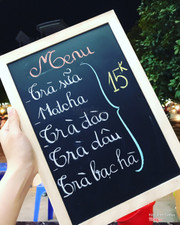 Menu
Trà sữa
Matcha
Trà đào
Trà dâu
Trà bạc hà
15K